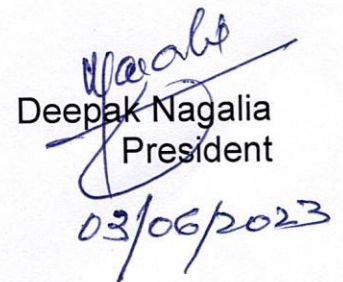 Deepak Nagalia
President
03/06/2023